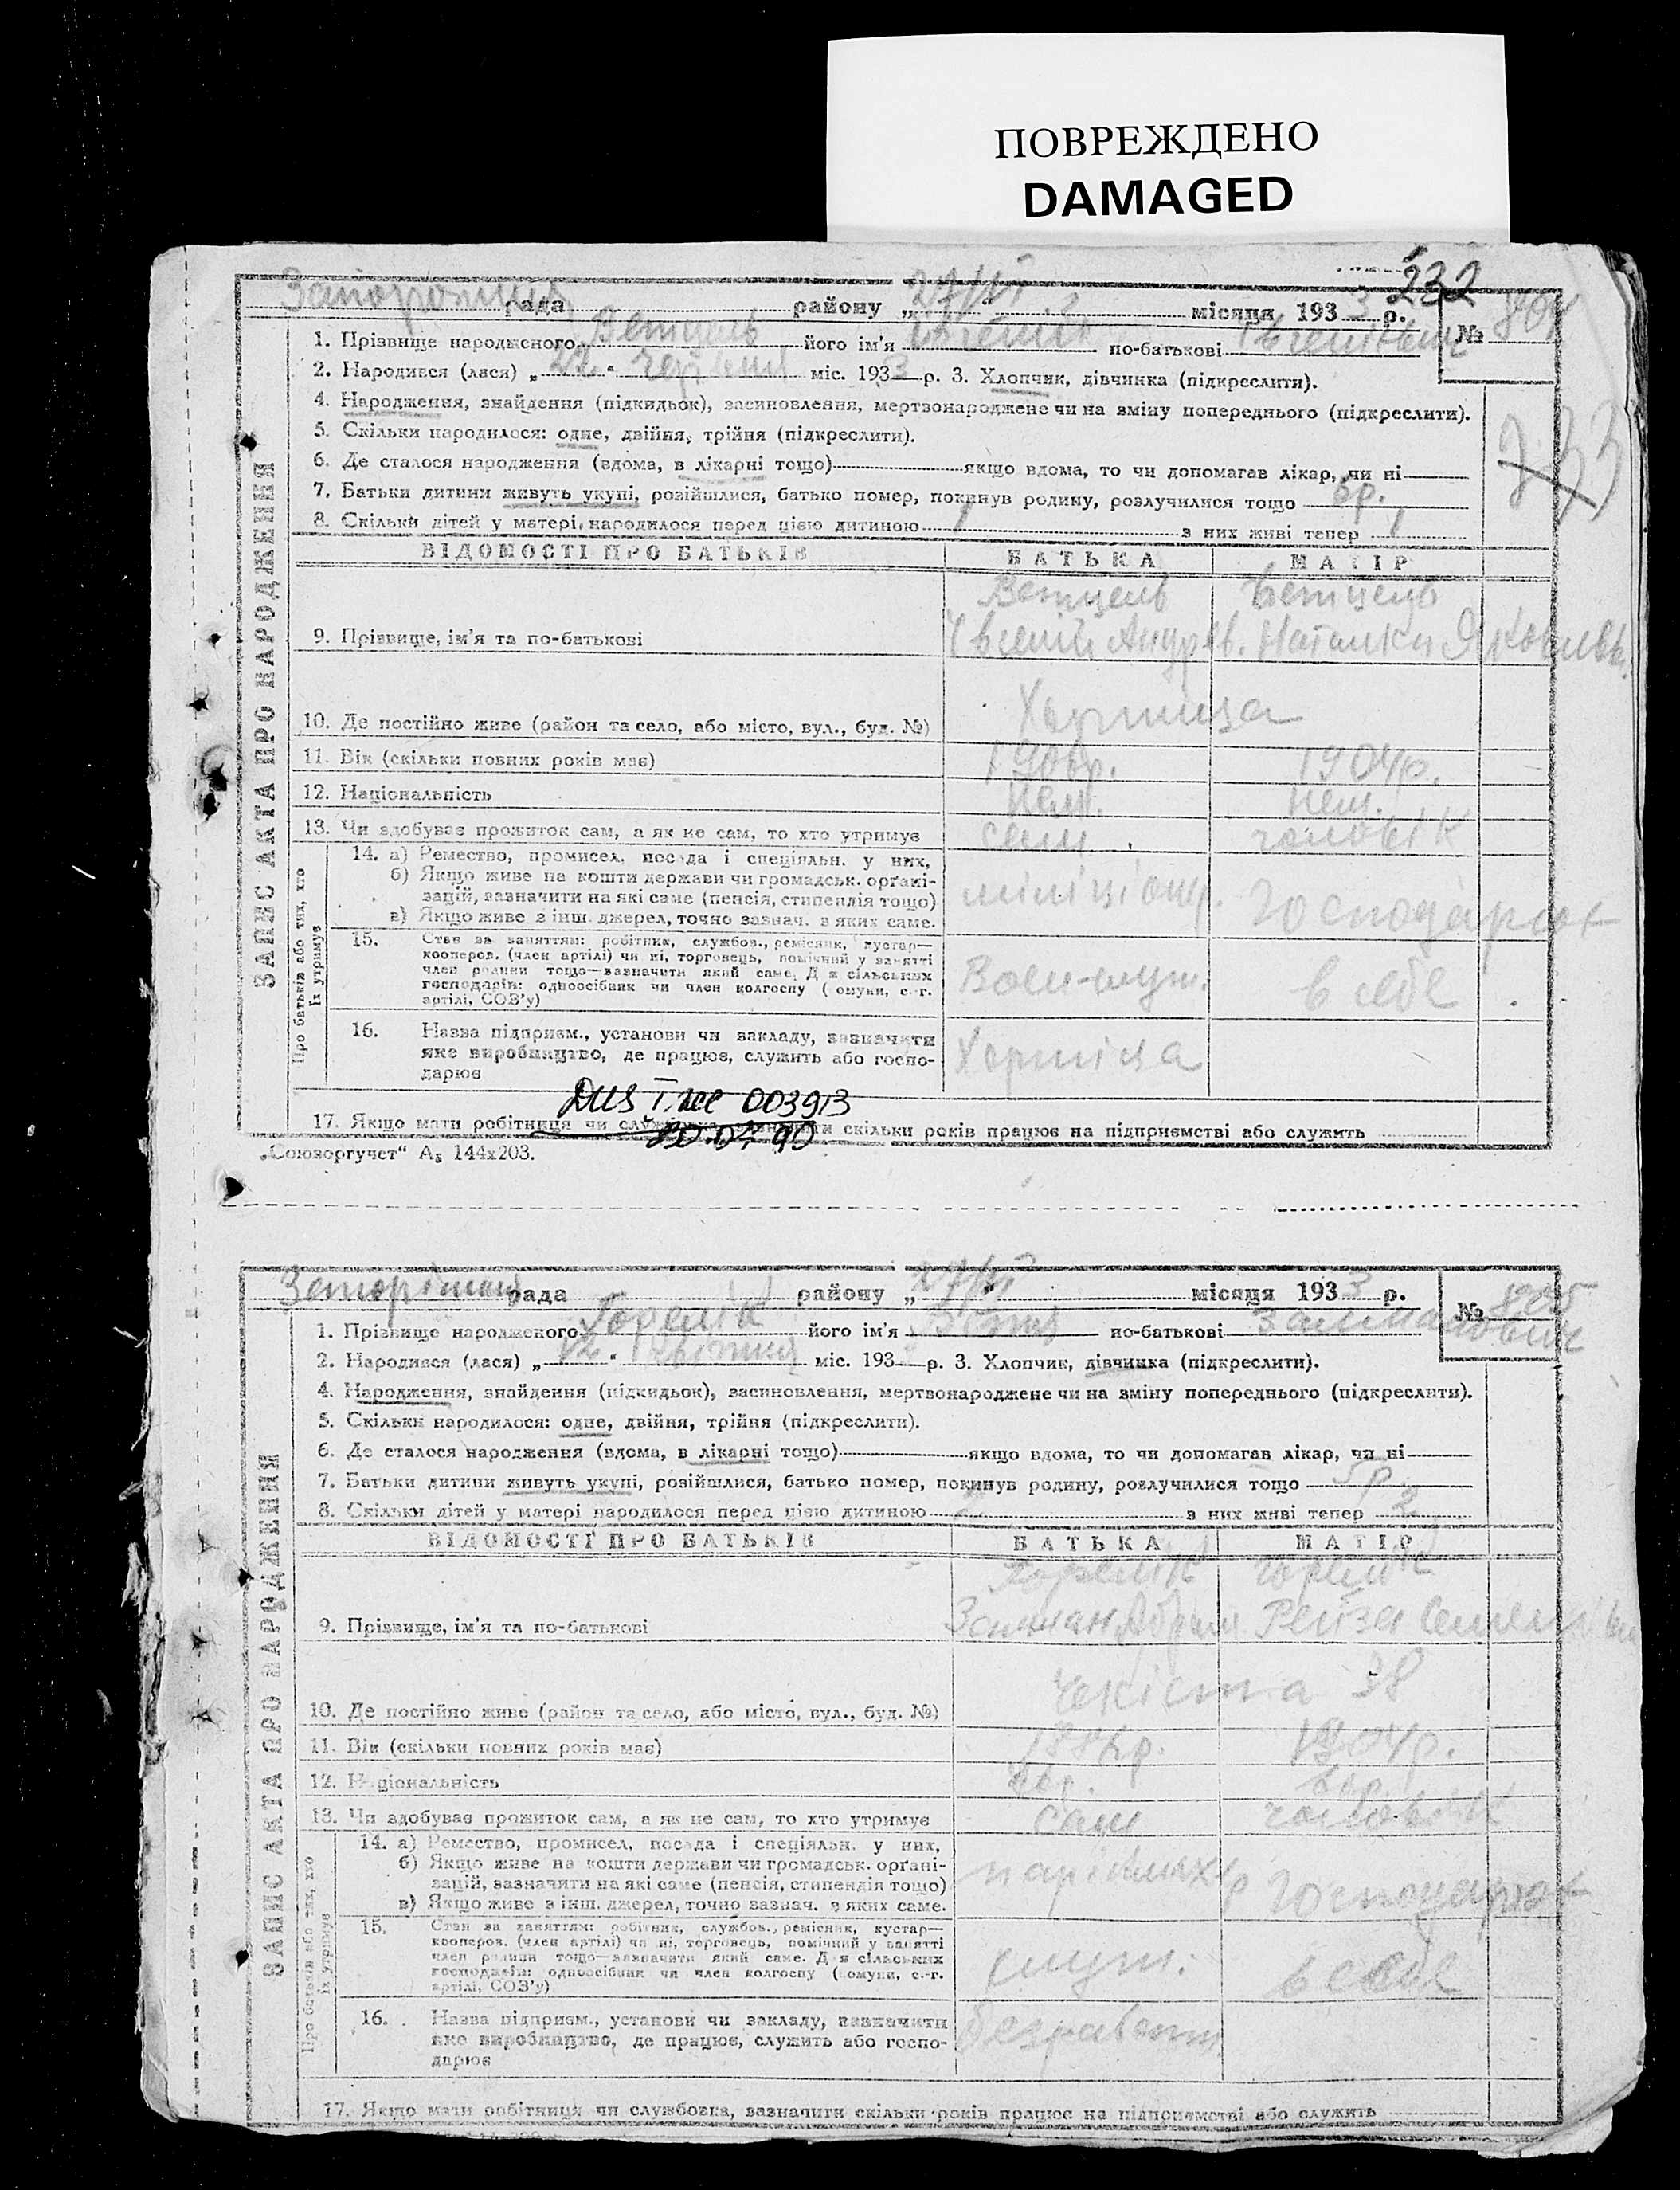 ПОВРЕЖДЕНО
DAMAGED
232
рада району „27/VI“ місяця 1933 р. № 804
1. Прізвище народженого Ветцель його ім'я по-батькові
2. Народився (лася) „22“ червня міс. 1933 р. 3. Хлопчик, дівчинка (підкреслити).
4. Народження, знайдення (підкидьок), засиновлення, мертвонароджене чи на зміну попереднього (підкреслити).
5. Скільки народилося: одне, двійня, трійня (підкреслити).
6. Де сталося народження (вдома, в лікарні тощо) якщо вдома, то чи допомагав лікар, чи ні
7. Батьки дитини живуть укупі, розійшлися, батько помер, покинув родину, розлучилися тощо 6р.
8. Скільки дітей у матері народилося перед цією дитиною 1 з них живі тепер 1
ВІДОМОСТІ ПРО БАТЬКІВ БАТЬКА МАТІР
Ветцель Ветцель
9. Прізвище, ім'я та по-батькові Євгеній Андрев. Наталки Яковлевн.
10. Де постійно живе (район та село, або місто, вул., буд. №) Хортица
11. Вік (скільки повних років має) 1906р. 1904р.
12. Національність нем. нем.
13. Чи здобуває прожиток сам, а як не сам, то хто утримує сам чоловік
14. а) Ремество, промисел, посада і спеціяльн. у них,
б) Якщо живе на кошти держави чи громадськ. органі-
зацій, зазначити на які саме (пенсія, стипендія тощо) міліціонер. господарює
в) Якщо живе з інш. джерел, точно зазнач. з яких саме.
15. Стан за заняттям: робітник, службов., ремісник, кустар—
кооперов. (член артілі) чи ні, торговець, помічний у занятті
член родини тощо—зазначити який саме. Для сільських
господарів: одноосібник чи член колгоспу (комуни, с.-г.
артілі, СОЗ'у) Воен-служ. в себе
16. Назва підприєм., установи чи закладу, зазначити
яке виробництво, де працює, служить або госпо-
дарює Хортіца
17. Якщо мати робітниця чи службовка, зазначити скільки років працює на підприємстві або служить
003913
„Союзоргучет“ А₅ 144х203.
ЗАПИС АКТА ПРО НАРОДЖЕННЯ
Про батьків або тих, хто їх утримує
рада району „27/VI“ місяця 1933 р. № 805
1. Прізвище народженого Горелік його ім'я по-батькові Залманович
2. Народився (лася) „12“ квітня міс. 193 р. 3. Хлопчик, дівчинка (підкреслити).
4. Народження, знайдення (підкидьок), засиновлення, мертвонароджене чи на зміну попереднього (підкреслити).
5. Скільки народилося: одне, двійня, трійня (підкреслити).
6. Де сталося народження (вдома, в лікарні тощо) якщо вдома, то чи допомагав лікар, чи ні
7. Батьки дитини живуть укупі, розійшлися, батько помер, покинув родину, розлучилися тощо 5р.
8. Скільки дітей у матері народилося перед цією дитиною з них живі тепер 2
ВІДОМОСТІ ПРО БАТЬКІВ БАТЬКА МАТІР
Горелік Горелік
9. Прізвище, ім'я та по-батькові Залман Абрам. Рейза
10. Де постійно живе (район та село, або місто, вул., буд. №) Чекіста 38
11. Вік (скільки повних років має) 1904р.
12. Національність євр. євр.
13. Чи здобуває прожиток сам, а як не сам, то хто утримує сам чоловік
14. а) Ремество, промисел, посада і спеціяльн. у них,
б) Якщо живе на кошти держави чи громадськ. органі-
зацій, зазначити на які саме (пенсія, стипендія тощо) парікмахер господарює
в) Якщо живе з інш. джерел, точно зазнач. з яких саме.
15. Стан за заняттям: робітник, службов., ремісник, кустар—
кооперов. (член артілі) чи ні, торговець, помічний у занятті
член родини тощо—зазначити який саме. Для сільських
господарів: одноосібник чи член колгоспу (комуни, с.-г.
артілі, СОЗ'у) служ. в себе
16. Назва підприєм., установи чи закладу, зазначити
яке виробництво, де працює, служить або госпо-
дарює
17. Якщо мати робітниця чи службовка, зазначити скільки років працює на підприємстві або служить
ЗАПИС АКТА ПРО НАРОДЖЕННЯ
Про батьків або тих, хто їх утримує